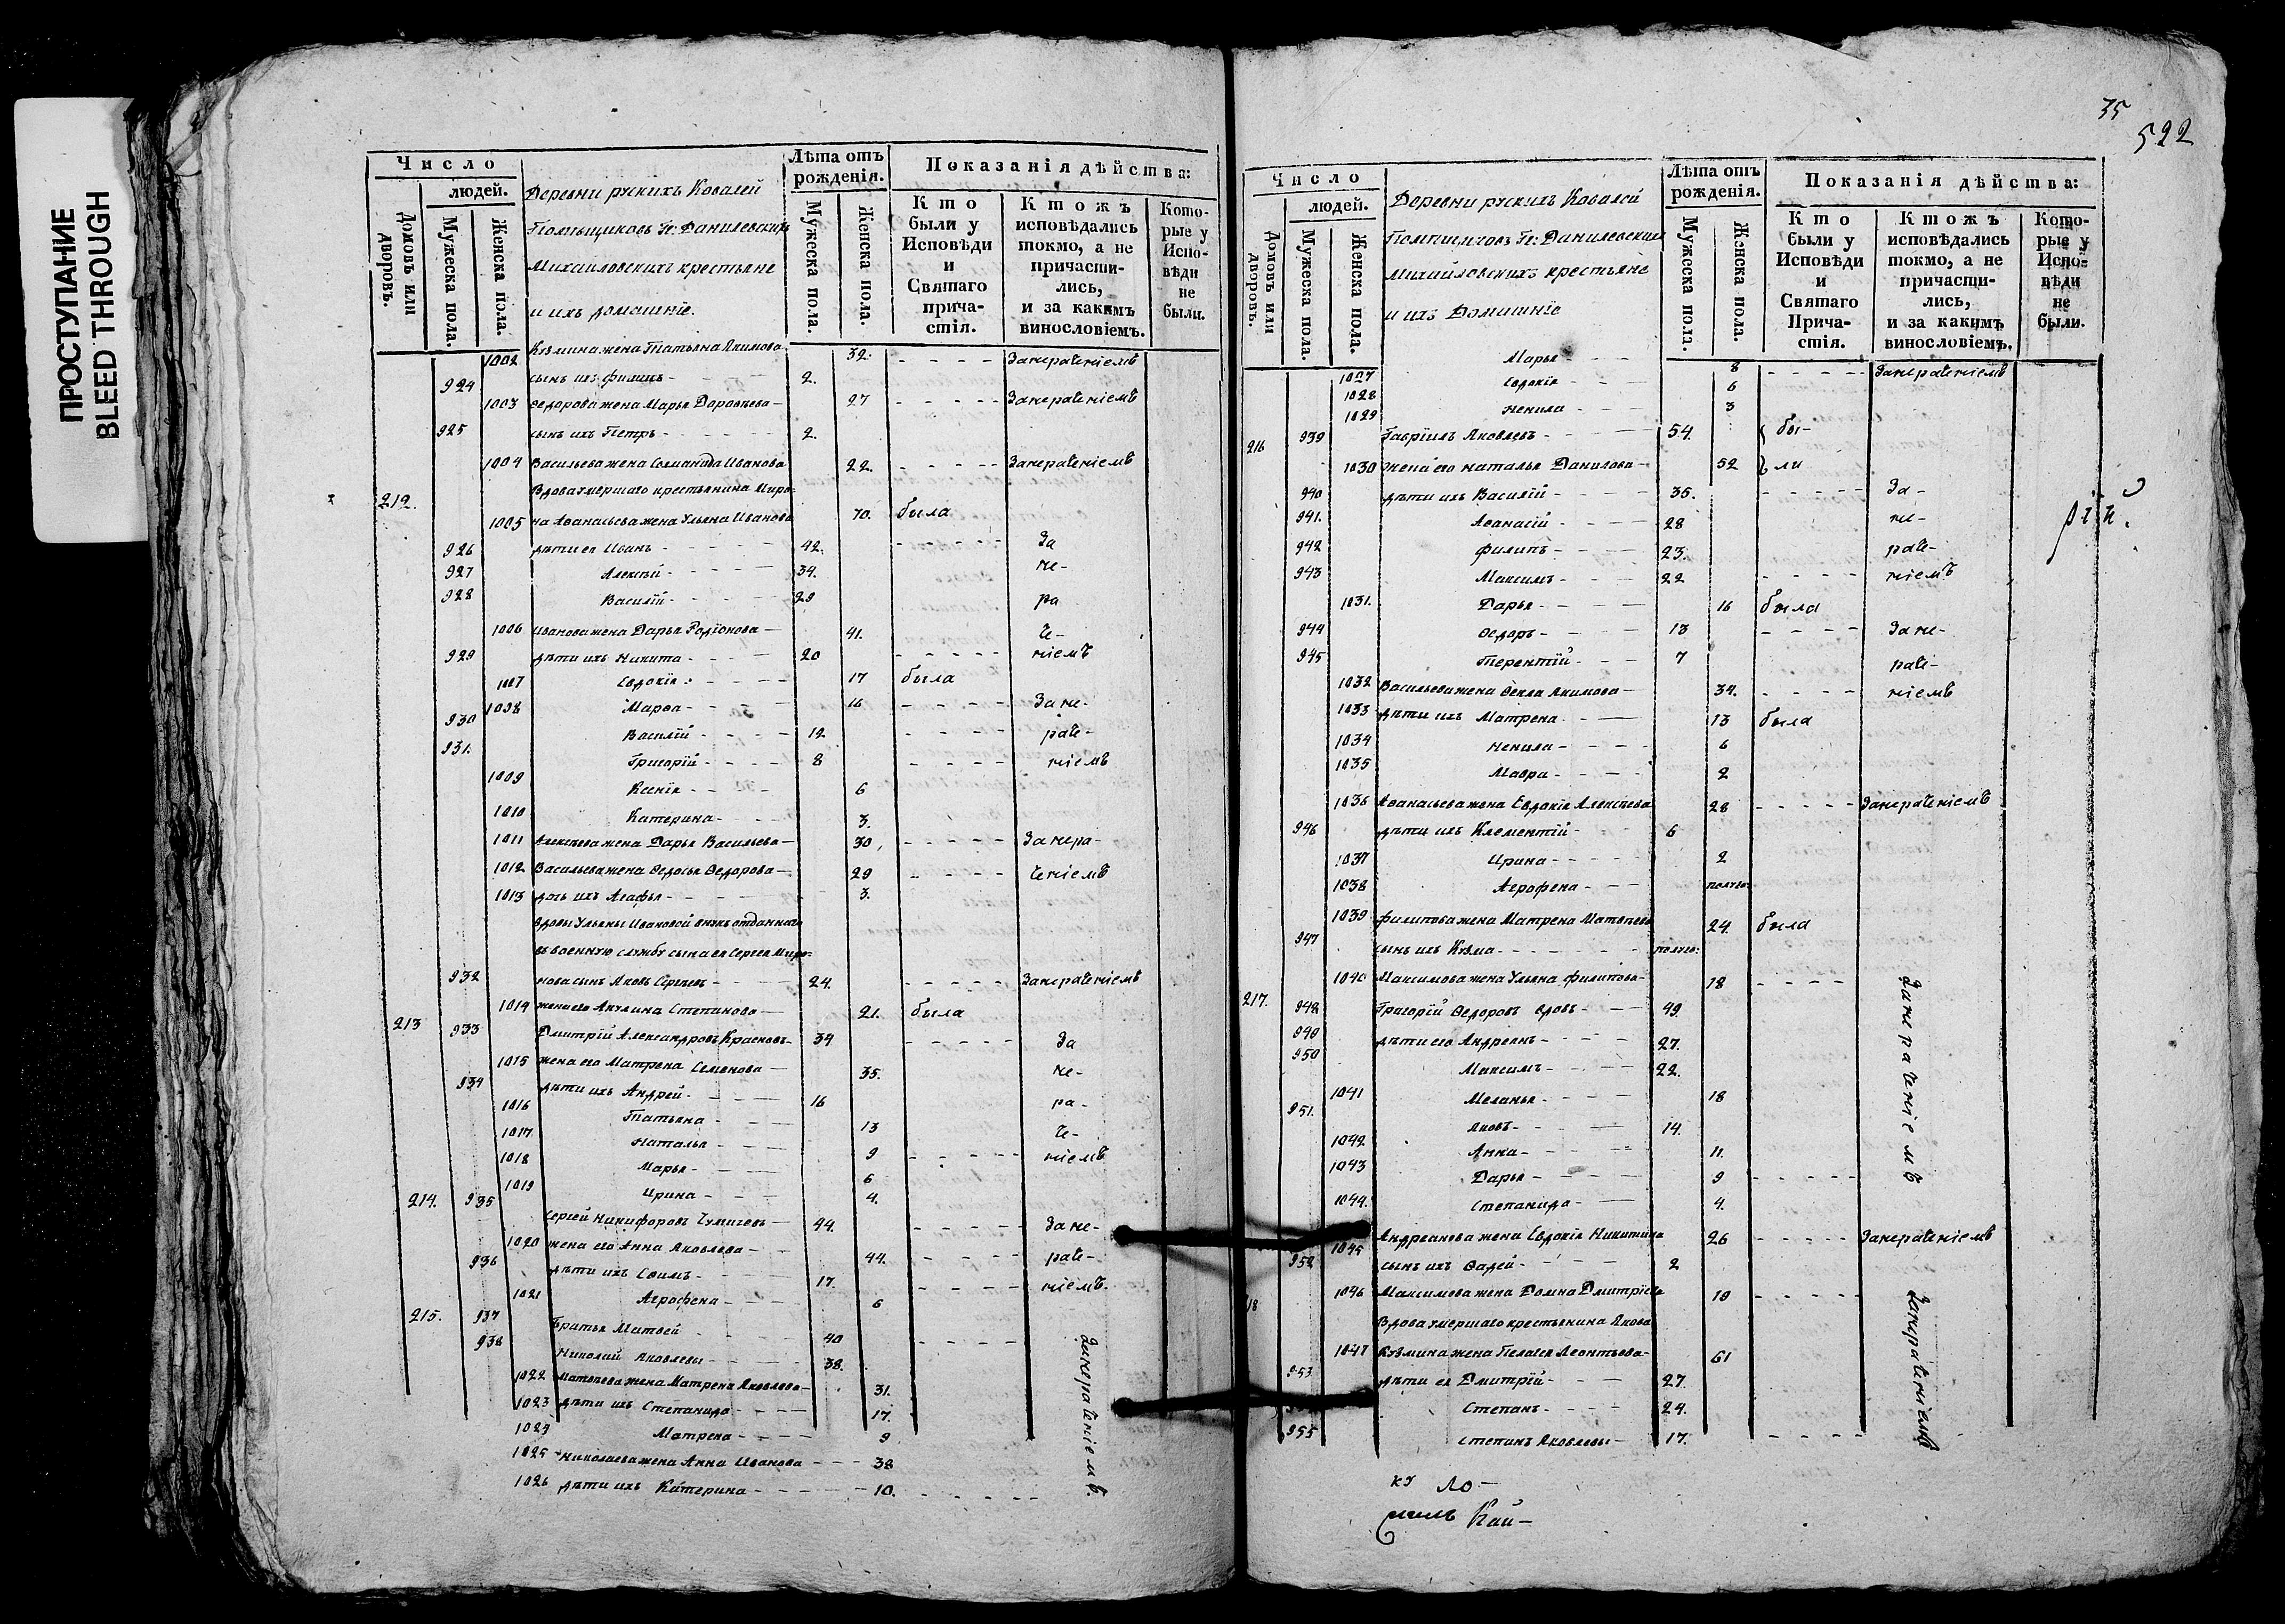 ПРОСТУПАНИЕ
BLEED THROUGH
Число
людей.
Домовъ или дворовъ.
Мужеска пола.
Женска пола.
Деревни рускихъ Ковалей
Помѣщиковъ Гг: Данилевскихъ
Михайловскихъ крестьяне
и ихъ домашніе.
Лѣта отъ рожденія.
Мужеска пола.
Женска пола.
Показанія дѣйства:
Кто были у Исповѣди и Святаго причастія.
Ктожъ исповѣдались токмо, а не причастились, и за какимъ винословіемъ.
Которые у Исповѣди не были.
1002 Кузмина жена Татьяна Акимова 32. Занераченіемъ
924 сынъ ихъ Филипъ 2.
1003 Ѳедорова жена Марья Дороѳеева 27 Занераченіемъ
925 сынъ ихъ Петръ 2.
1004 Васильева жена Соломанида Иванова 22. Занераченіемъ
212. Вдова умершаго крестьянина Миро-
1005 на Аѳанасьева жена Ульяна Иванова 70. была
926 дѣти ея Иванъ 42. За
927 Алексѣй 34. не-
928 Василій 29 ра
1006 Иванова жена Дарья Родіонова 41. че-
929 дѣти ихъ Никита 20 ніемъ
1007 Евдокія 17 была
1008 Марѳа 16 Зане-
930 Василій 12 раче-
931. Григорій 8 ніемъ
1009 Ксенія 6
1010 Катерина 3.
1011 Алексѣева жена Дарья Васильева 30, Занера-
1012 Васильева жена Ѳедосья Ѳедорова 29 ченіемъ
1013 дочь ихъ Агафья 3.
Вдовы Ульяны Ивановой внукъ отданнаго
въ военную службу сына ея Сергея Миро-
932 нова сынъ Яковъ Сергѣевъ 24. Занераченіемъ
1014 жена его Акулина Степанова 21. была
213 933 Дмитрій Александровъ Красновъ 34 За
1015 жена его Матрена Семенова 35. не-
934 дѣти ихъ Андрей 16 ра-
1016 Татьяна 13 че-
1017 Наталья 9 ніемъ
1018 Марья 6
1019 Ирина 4.
214. 935 Сергей Никифоровъ 44. Зане-
1020 жена его Анна Яковлева 44. раче-
936 дѣти ихъ Ефимъ 17. ніемъ.
1021 Агрофена 6
215. 937 Братья Матвей 40
938 Николай Яковлевы 38. Занераченіемъ.
1022 Матвѣева жена Матрена Яковлева 31.
1023 дѣти ихъ Степанида 17.
1024 Матрена 9
1025 Николаева жена Анна Иванова 38
1026 дѣти ихъ Катерина 10.
35
522
Число
людей.
Домовъ или дворовъ.
Мужеска пола.
Женска пола.
Деревни рускихъ Ковалей
Помѣщиковъ Гг: Данилевскихъ
Михайловскихъ крестьяне
и ихъ Домашніе
Лѣта отъ рожденія.
Мужеска пола.
Женска пола.
Показанія дѣйства:
Кто были у Исповѣди и Святаго Причастія.
Ктожъ исповѣдались токмо, а не причастились, и за какимъ винословіемъ.
Которые у Исповѣди не были.
1027 Марья 8 Занераченіемъ
1028 Евдокія 6
1029 Ненила 3
216 939 Гавріилъ Яковлевъ 54. бы-
1030 жена его Наталья Данилова 52 ли
940 дѣти ихъ Василій 35. За-
941. Аѳанасій 28 не-
942 Филипъ 23. раче-
943 Максимъ 22 ніемъ
рій.
1031. Дарья 16 была
944 Ѳедоръ 13 Зане-
945 Терентій 7 раче-
1032 Васильева жена Ѳекла Акимова 34. ніемъ
1033 дѣти ихъ Матрена 13 была
1034 Ненила 6
1035 Мавра 2
1036 Аѳанасьева жена Евдокія Алексѣева 28 Занераченіемъ
946 дѣти ихъ Клементій 6
1037 Ирина 2
1038 Агрофена полуго:
1039 Филипова жена Матрена Матвѣева 24. была
947 сынъ ихъ Кузма полуго:
1040 Максимова жена Ульяна Филипова 18
217. 948 Григорій Ѳедоровъ вдовъ 49. Занераченіемъ
949 дѣти его Андреянъ 27.
950 Максимъ 22.
1041 Меланья 18
951. Яковъ 14.
1042 Анна 11.
1043 Дарья 9
1044. Степанида 4.
1045 Андреанова жена Евдокія Никитина 26 Занераченіемъ
952 сынъ ихъ Фадей 2
1046 Максимова жена Домна Дмитріева 19
18 Вдова умершаго крестьянина Якова
1047 Кузмина жена Пелагея Леонтьева 61 Занераченіемъ
953 дѣти ея Дмитрій 27.
Степанъ 24.
955 Степанъ Яковлевы 17.
ку Ло-
Кай-